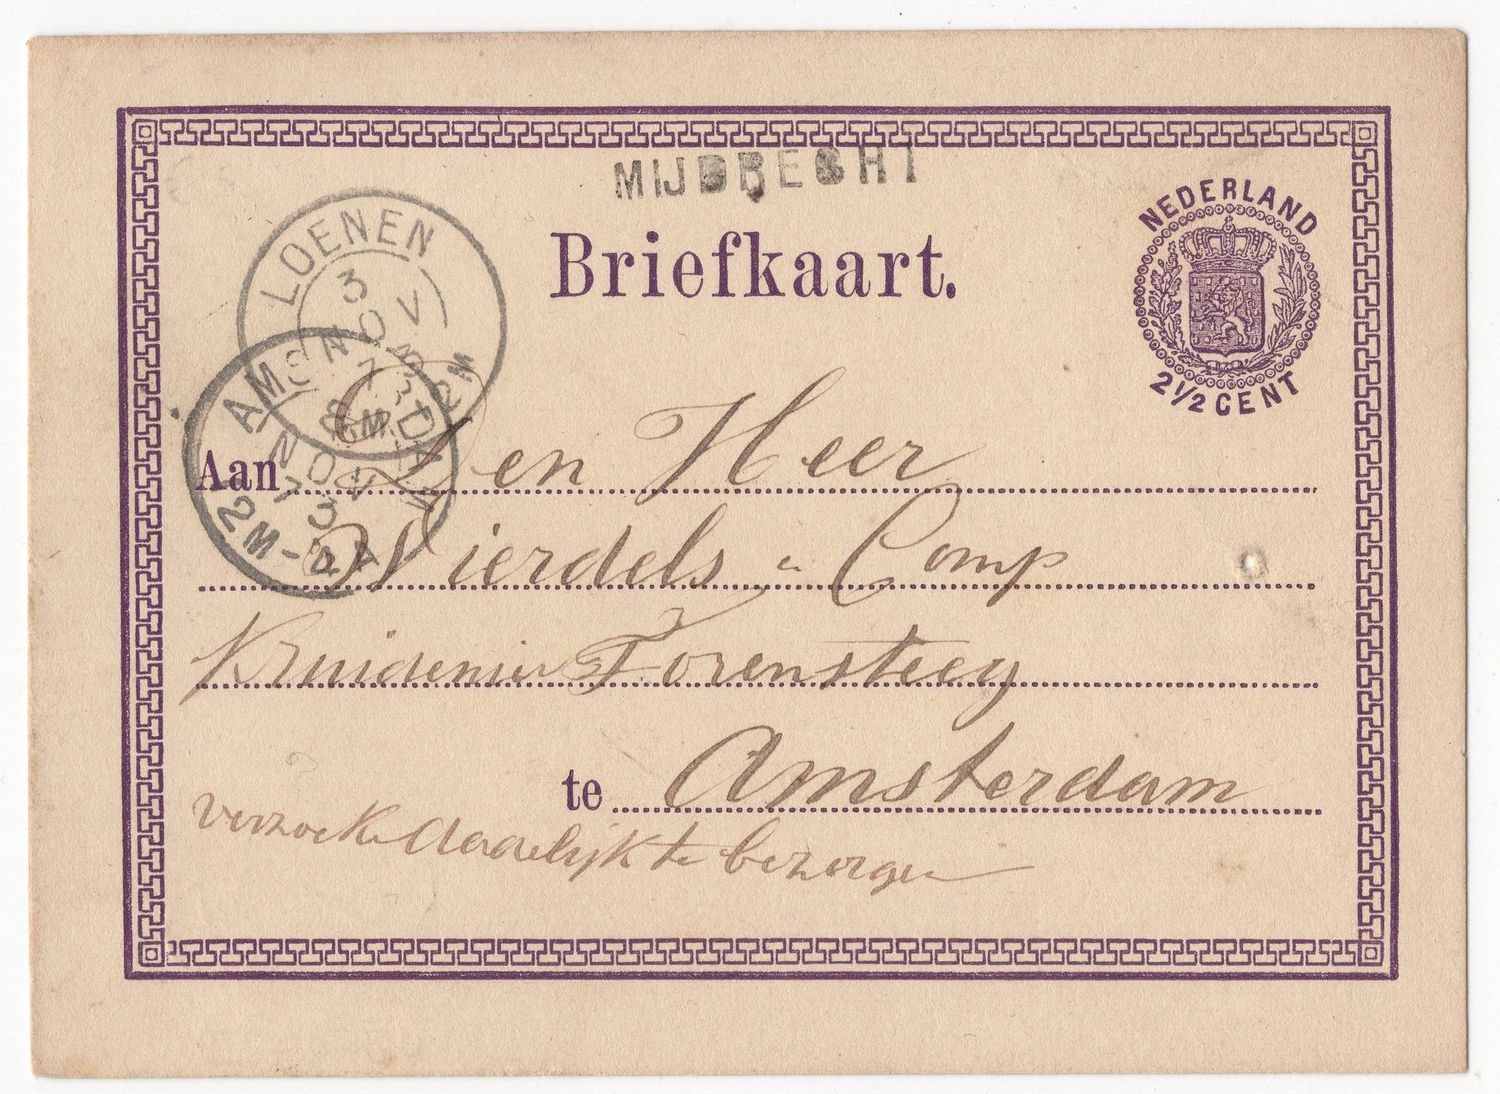 MIJDRECHT
Briefkaart.
NEDERLAND
2½ CENT
LOENEN
3
NOV
73
AMSTERDAM
NOV
73
Aan Den Heer
Wierdels & Comp
Kruidenier Torensteeg
te Amsterdam
verzoeke dadelijk te bezorgen